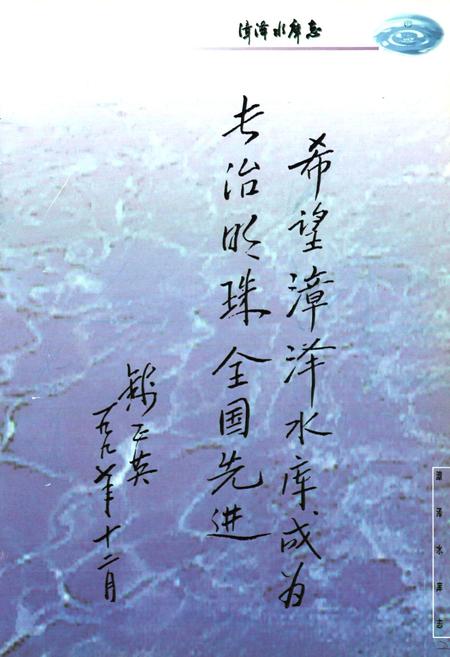 漳泽水库志
希望漳泽水库成为
长治明珠全国先进
钱正英
一九九七年十二月
漳泽水库志